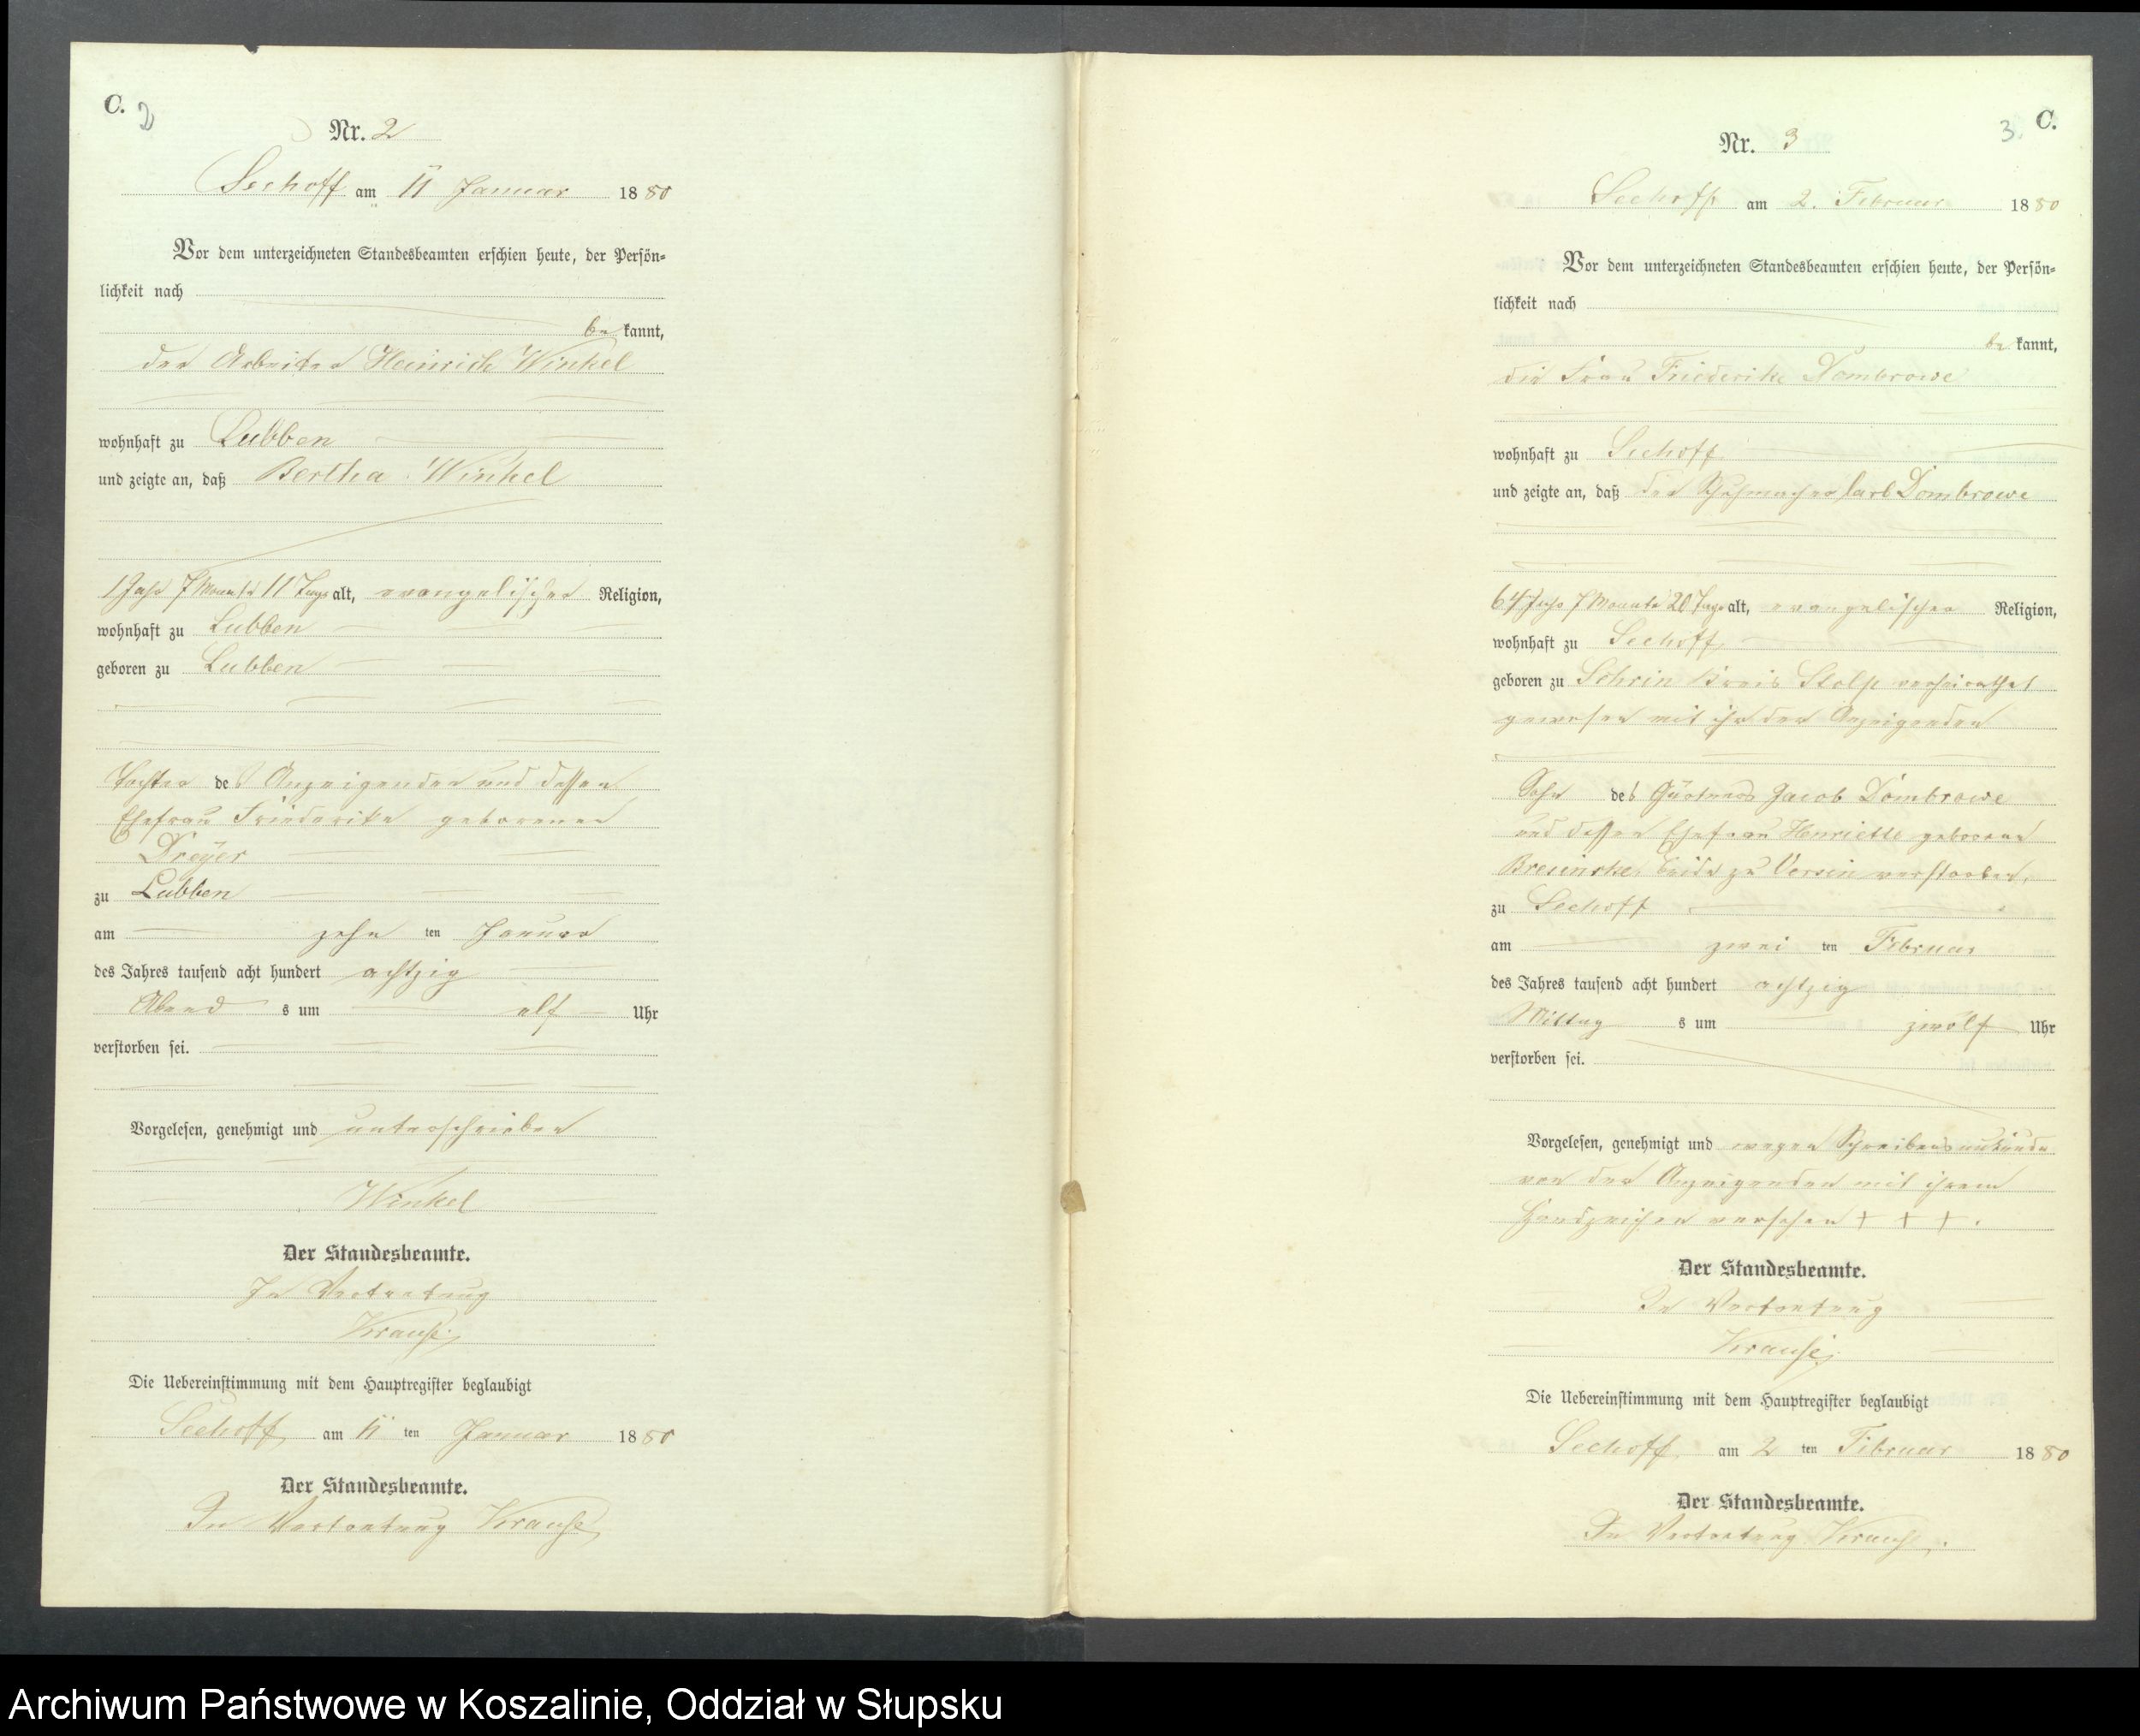 C.
2
Nr. 2
Seehoff am 11 Januar 1880
Vor dem unterzeichneten Standesbeamten erschien heute, der Persön-
lichkeit nach
be kannt,
der Arbeiter Heinrich Winkel
wohnhaft zu Lubben
und zeigte an, daß Bertha Winkel
1 Jahr 7 Monate 11 Tage alt, evangelischer Religion,
wohnhaft zu Lubben
geboren zu Lubben
Tochter des Anzeigenden und dessen
Ehefrau Friederike geborenen
Dreyer
zu Lubben
am zehn ten Januar
des Jahres tausend acht hundert achtzig
Abend s um elf Uhr
verstorben sei.
Vorgelesen, genehmigt und unterschrieben
Winkel
Der Standesbeamte.
In Vertretung
Krause
Die Uebereinstimmung mit dem Hauptregister beglaubigt
Seehoff am 11 ten Januar 1880
Der Standesbeamte.
In Vertretung Krause
C.
3.
Nr. 3
Seehoff am 2. Februar 1880
Vor dem unterzeichneten Standesbeamten erschien heute, der Persön-
lichkeit nach
be kannt,
die Frau Friederike Dombrowe
wohnhaft zu Seehoff
und zeigte an, daß der Schuhmacher Carl Dombrowe
64 Jahr 7 Monate 20 Tage alt, evangelischer Religion,
wohnhaft zu Seehoff
geboren zu Kreis Stolp verheirathet
gewesen mit ihr der Anzeigenden
Sohn des Gärtners Jacob Dombrowe
und dessen Ehefrau Henriette geborene
beide zu Versin verstorben.
zu Seehoff
am zwei ten Februar
des Jahres tausend acht hundert achtzig
Mittag s um zwölf Uhr
verstorben sei.
Vorgelesen, genehmigt und wegen Schreibensunkunde
von der Anzeigenden mit ihrem
Handzeichen versehen + + +.
Der Standesbeamte.
In Vertretung
Krause
Die Uebereinstimmung mit dem Hauptregister beglaubigt
Seehoff am 2 ten Februar 1880
Der Standesbeamte.
In Vertretung Krause.
Archiwum Państwowe w Koszalinie, Oddział w Słupsku